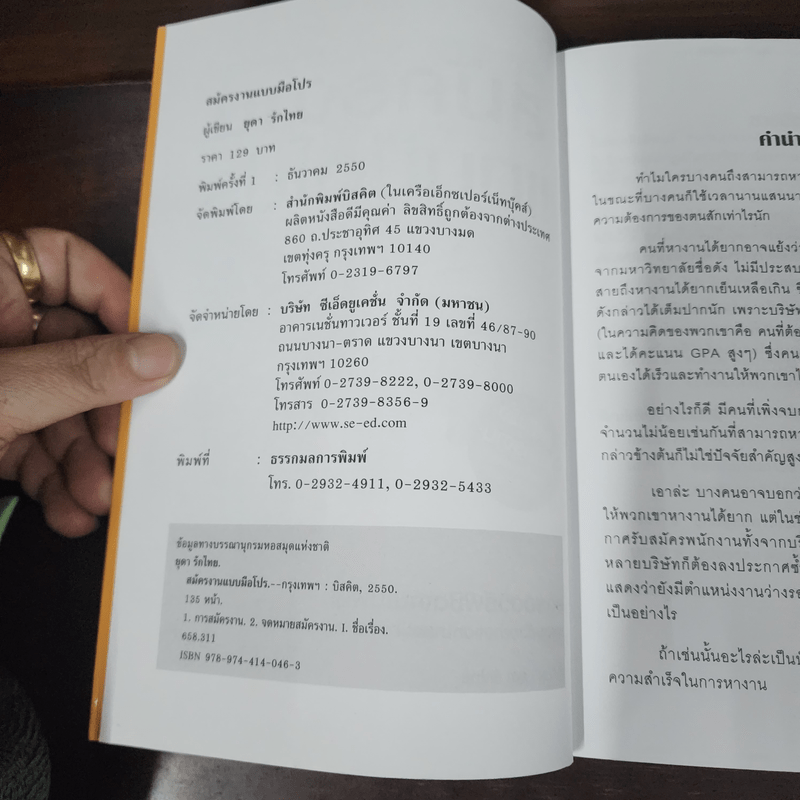 สมัครงานแบบมือโปร
ผู้เขียน ยุดา รักไทย
ราคา 129 บาท
พิมพ์ครั้งที่ 1 : ธันวาคม 2550
จัดพิมพ์โดย : สำนักพิมพ์บิสคิต (ในเครือเอ็กซเปอร์เน็ทบุ๊คส์)
ผลิตหนังสือดีมีคุณค่า ลิขสิทธิ์ถูกต้องจากต่างประเทศ
860 ถ.ประชาอุทิศ 45 แขวงบางมด
เขตทุ่งครุ กรุงเทพฯ 10140
โทรศัพท์ 0-2319-6797
จัดจำหน่ายโดย : บริษัท ซีเอ็ดยูเคชั่น จำกัด (มหาชน)
อาคารเนชั่นทาวเวอร์ ชั้นที่ 19 เลขที่ 46/87-90
ถนนบางนา-ตราด แขวงบางนา เขตบางนา
กรุงเทพฯ 10260
โทรศัพท์ 0-2739-8222, 0-2739-8000
โทรสาร 0-2739-8356-9
http://www.se-ed.com
พิมพ์ที่ : ธรรกมลการพิมพ์
โทร. 0-2932-4911, 0-2932-5433
ข้อมูลทางบรรณานุกรมหอสมุดแห่งชาติ
ยุดา รักไทย.
สมัครงานแบบมือโปร.--กรุงเทพฯ : บิสคิต, 2550.
135 หน้า.
1. การสมัครงาน. 2. จดหมายสมัครงาน. I. ชื่อเรื่อง.
658.311
ISBN 978-974-414-046-3
คำนำ
ทำไมใครบางคนถึงสามารถหา
ในขณะที่บางคนก็ใช้เวลานานแสนนา
ความต้องการของตนสักเท่าไรนัก
คนที่หางานได้ยากอาจแย้งว่า
จากมหาวิทยาลัยชื่อดัง ไม่มีประสบ
สายถึงหางานได้ยากเย็นเหลือเกิน
ดังกล่าวได้เต็มปากนัก เพราะบริษัท
(ในความคิดของพวกเขาคือ คนที่ต้อ
และได้คะแนน GPA สูงๆ) ซึ่งคน
ตนเองได้เร็วและทำงานให้พวกเขาไ
อย่างไรก็ดี มีคนที่เพิ่งจบก
จำนวนไม่น้อยเช่นกันที่สามารถหา
กล่าวข้างต้นก็ไม่ใช่ปัจจัยสำคัญสูง
เอาล่ะ บางคนอาจบอกว่
ให้พวกเขาหางานได้ยาก แต่ในช่
กาศรับสมัครพนักงานทั้งจากบริ
หลายบริษัทก็ต้องลงประกาศซ้ำ
แสดงว่ายังมีตำแหน่งงานว่างรอ
เป็นอย่างไร
ถ้าเช่นนั้นอะไรล่ะเป็นปั
ความสำเร็จในการหางาน